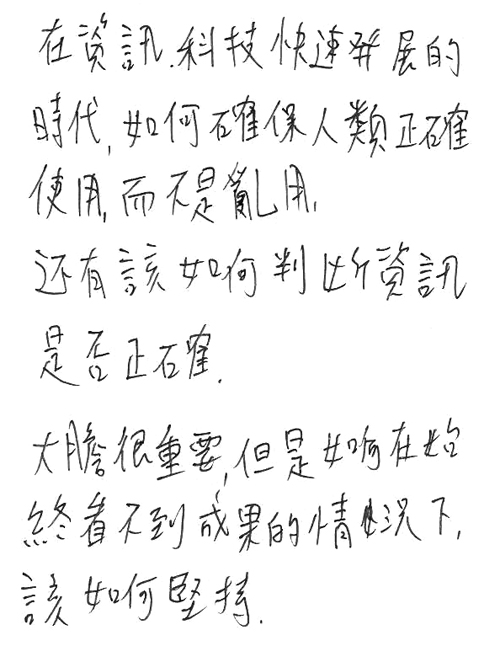 在資訊.科技快速發展的
時代,如何確保人類正確
使用,而不是亂用,
还有該如何判断資訊
是否正確.
大膽很重要,但是如何在始
終看不到成果的情況下,
該如何堅持.